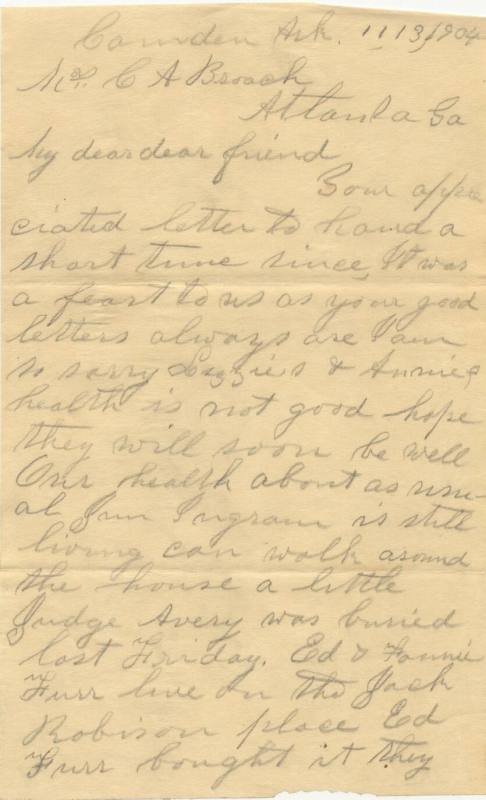 Camden Ark. 11/13/904
Mrs. C A Broach
Attanla Ga
My dear dear friend
Your appre
ciated letter to hand a
short time since, It was
a feast to us as your good
letters always are I am
so sorry Lizzie,s & Annie,s
health is not good hope
they will soon be well
Our health about as usu-
al Jim Ingram is still
living can walk around
the house a little
Judge Avery was buried
last Friday. Ed & Fannie
Furr live on the Jack
Robison place Ed
Furr bought it they